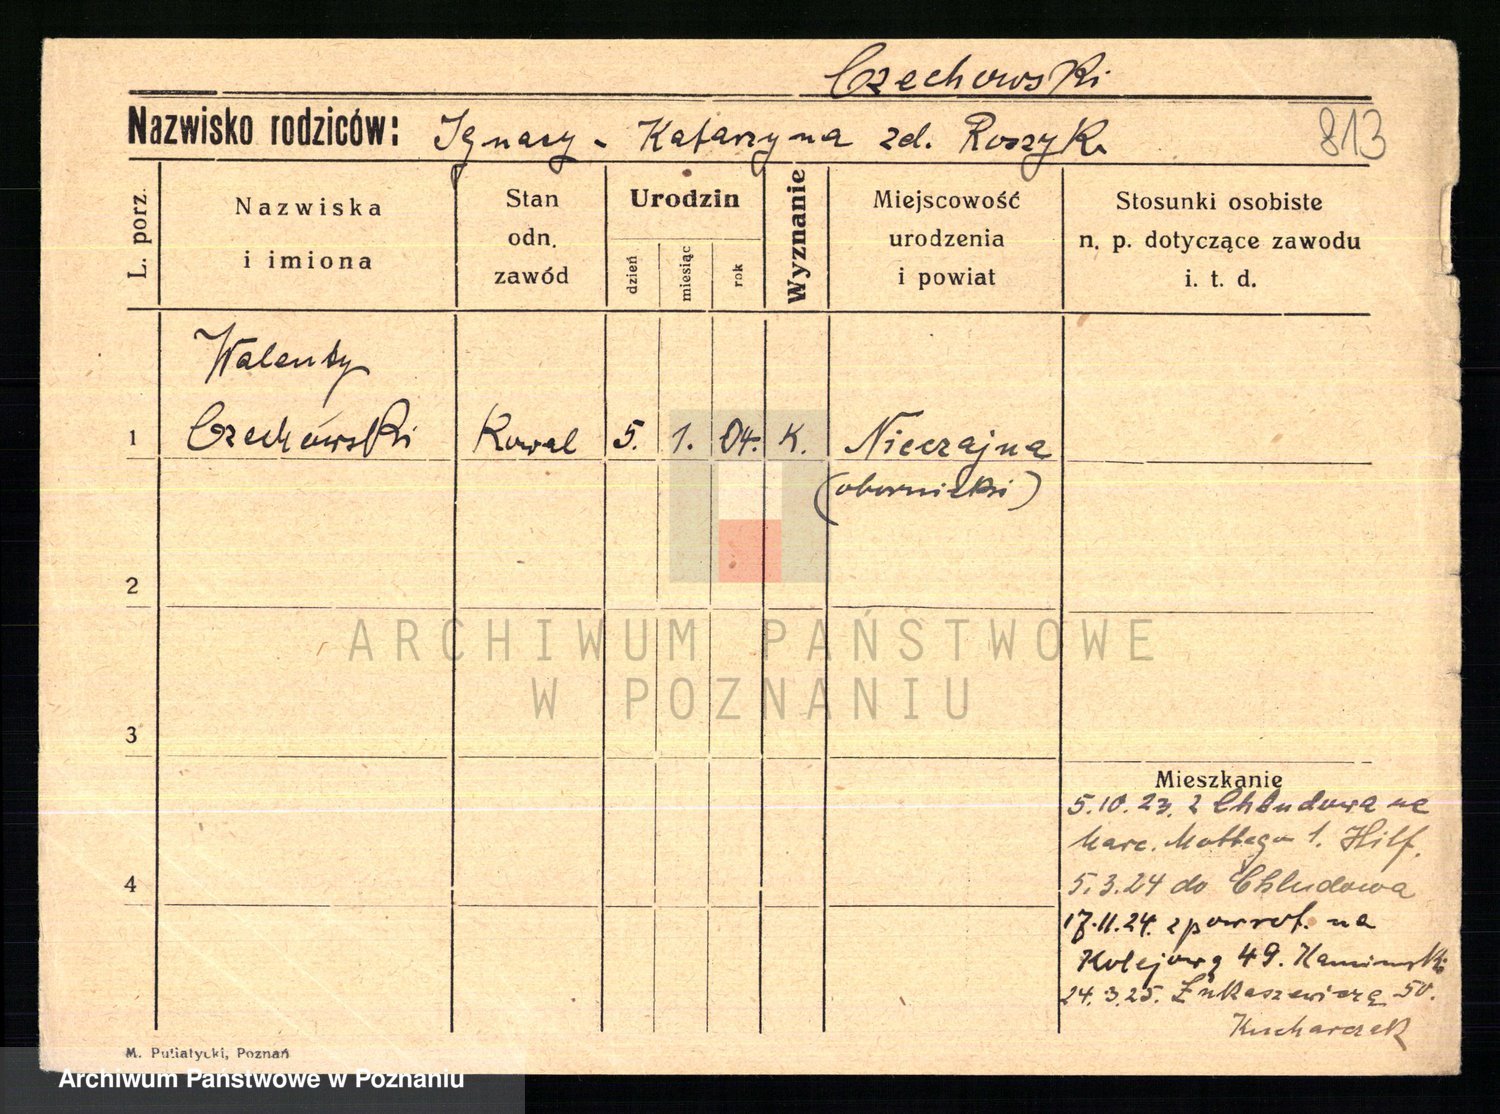 Czechowski
Nazwisko rodziców: Ignacy - Katarzyna zd. Roszyk 813
L. porz.
Nazwiska
i imiona
Stan
odn.
zawód
Urodzin
dzień
miesiąc
rok
Wyznanie
Miejscowość
urodzenia
i powiat
Stosunki osobiste
n. p. dotyczące zawodu
i. t. d.
Walenty
1 Czechowski Kowal 5. 1. 04. K. Nieczajna
(obornicki)
2
3
4
Mieszkanie
5.10.23. z Chludowa na
Marc. Mottego 1. Hilf.
5.3.24 do Chludowa
17.11.24. zpowrot. na
Kolejową 49. Kaminski
24.3.25. Łukaszewicza 50.
Kucharczak
M. Putiatycki, Poznań
ARCHIWUM PAŃSTWOWE
W POZNANIU
Archiwum Państwowe w Poznaniu